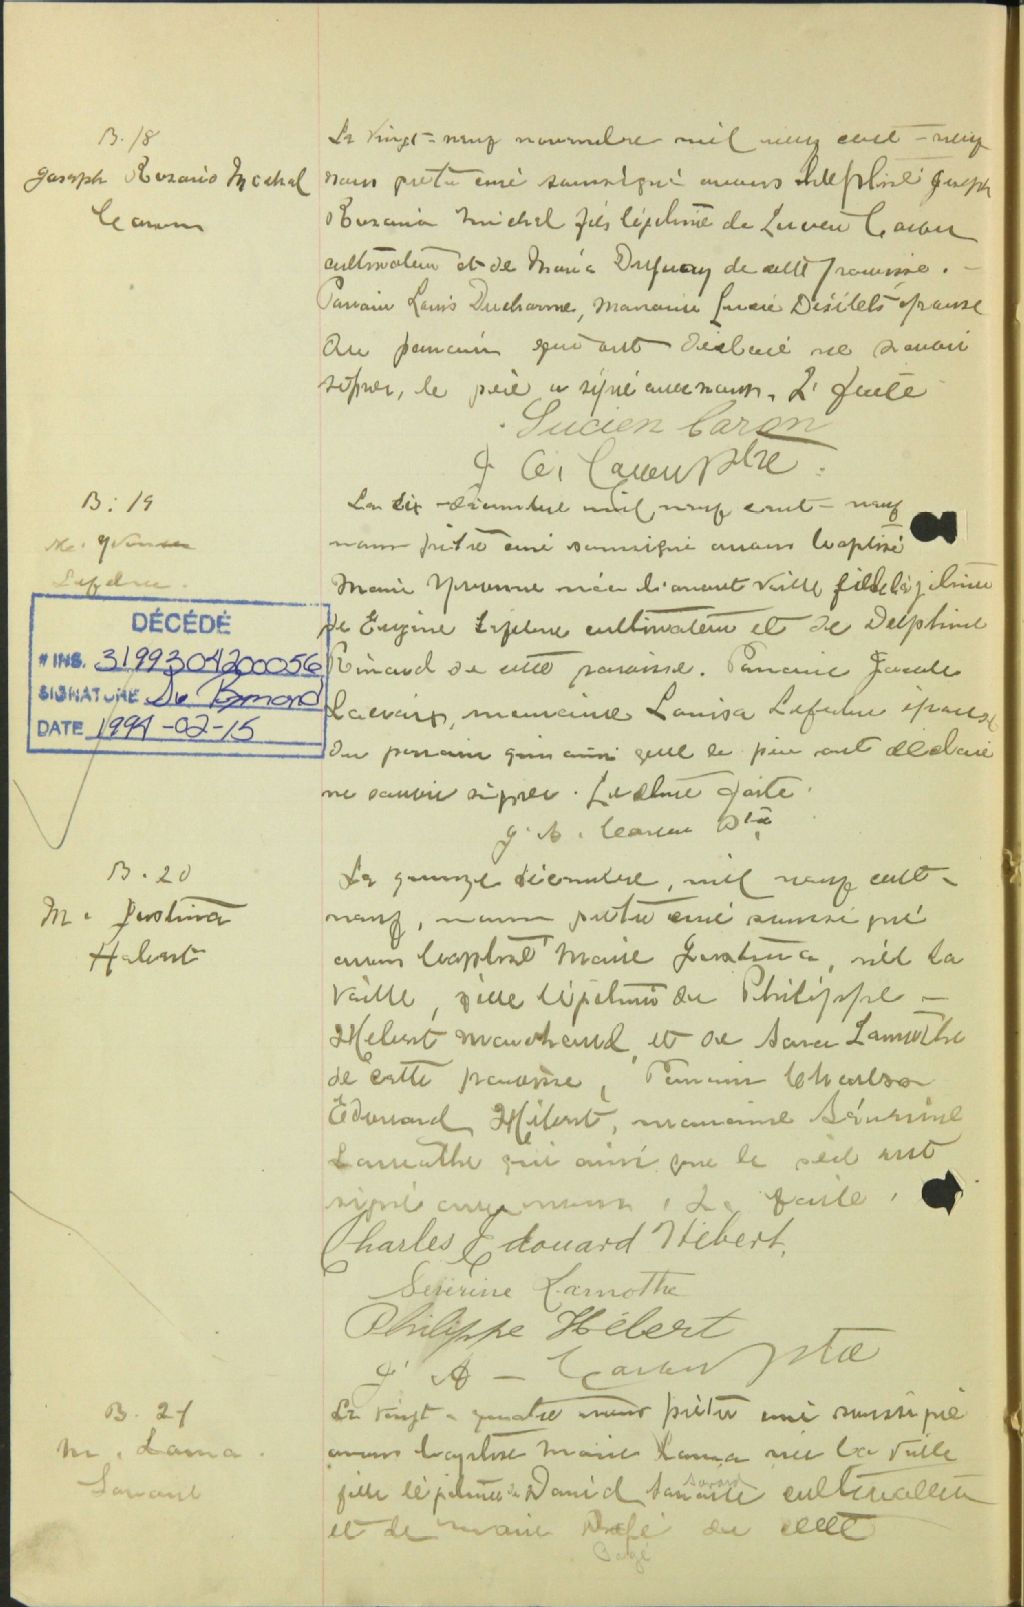 B. 18
Joseph Rosario Michel
Caron
Le vingt-neuf novembre mil neuf cent-neuf
nous prêtre curé soussigné avons baptisé Joseph
Rosario Michel fils légitime de Lucien Caron
cultivateur et de Maria Dufuay de cette paroisse. -
Parrain Louis Ducharme, marraine Désilets épouse
du parrain qui ont déclaré ne savoir
signer, le père a signé avec nous.
Lucien Caron
J. A. Caron ptre
B. 19
M. Yvonne
Lefebvre
DÉCÉDÉ
# INS. 3199304200056
SIGNATURE
DATE 1994-02-15
Le dix décembre mil neuf cent-neuf
nous prêtre curé soussigné avons baptisé
Marie Yvonne née l'avant veille fille légitime
de Eugène Lefebvre cultivateur et de Delphine
de cette paroisse. Parrain
marraine Louisa Lefebvre épouse
du parrain qui ainsi que le père ont déclaré
ne savoir signer. Lecture faite.
J. A. Caron Ptre
B. 20
M. Justina
Hebert
Le quinze décembre, mil neuf cent-
neuf, nous prêtre curé soussigné
avons baptisé Marie Justina, née la
veille, fille légitime de Philippe -
Hebert marchand, et de Sara Lamothe
de cette paroisse, Parrain Charles
Edouard Hébert, marraine Séverine
Lamothe qui ainsi que le père ont
signé avec nous, L. faite.
Charles Edouard Hébert.
Séverine Lamothe
Philippe Hébert
J A - Caron ptre
B. 21
M. Lama
Le vingt-quatre nous prêtre curé soussigné
avons baptisé Marie Lama née la veille
fille légitime de David cultivateur
Savard
et de Marie de cette